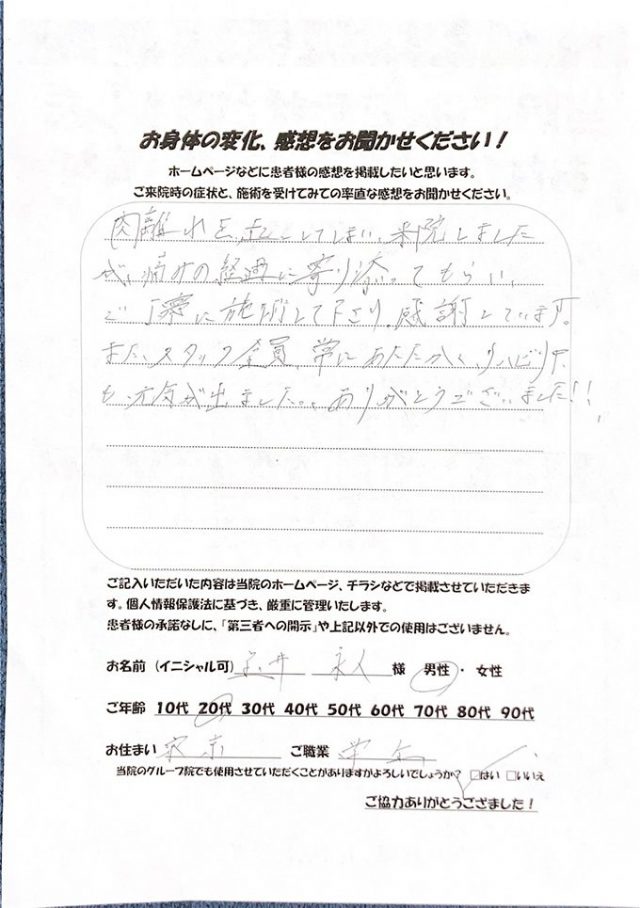 お身体の変化、感想をお聞かせください！
ホームページなどに患者様の感想を掲載したいと思います。
ご来院時の症状と、施術を受けてみての率直な感想をお聞かせください。
肉離れを起こしてしまい、来院しました
が、痛みの経過に寄り添ってもらい、
ご丁寧に施術して下さり、感謝しています。
また、スタッフ全員、常にあたたかく、リハビリ中
も、元気が出ました。ありがとうございました!!
ご記入いただいた内容は当院のホームページ、チラシなどで掲載させていただきま
す。個人情報保護法に基づき、厳重に管理いたします。
患者様の承諾なしに、「第三者への開示」や上記以外での使用はございません。
お名前（イニシャル可） 様 男性・女性
ご年齢 10代 20代 30代 40代 50代 60代 70代 80代 90代
お住まい 東京 ご職業 学生
当院のグループ院でも使用させていただくことがありますがよろしいでしょうか？ □はい □いいえ
ご協力ありがとうござました！